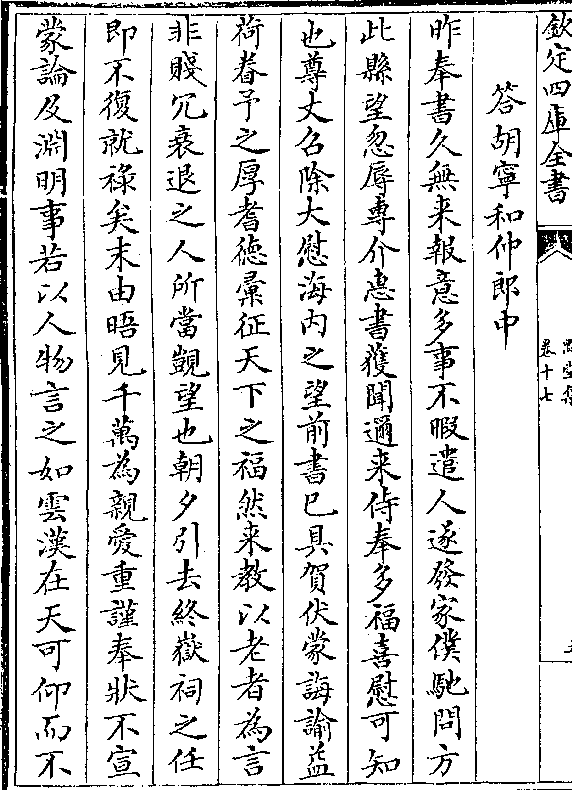 欽定四庫全書
卷十七
答胡寧和仲郎中
昨奉書久無来報意多事不暇遣人遂發家僕馳問方
此縣望忽辱專介惠書獲聞邇来侍奉多福喜慰可知
也尊丈召除大慰海内之望前書已具賀伏蒙誨諭益
荷眷予之厚耆徳彚征天下之福然来教以老者為言
非賤冗衰退之人所當覬望也朝夕引去終嶽祠之任
即不復就祿矣末由晤見千萬為親愛重謹奉狀不宣
蒙論及淵明事若以人物言之如雲漢在天可仰而不